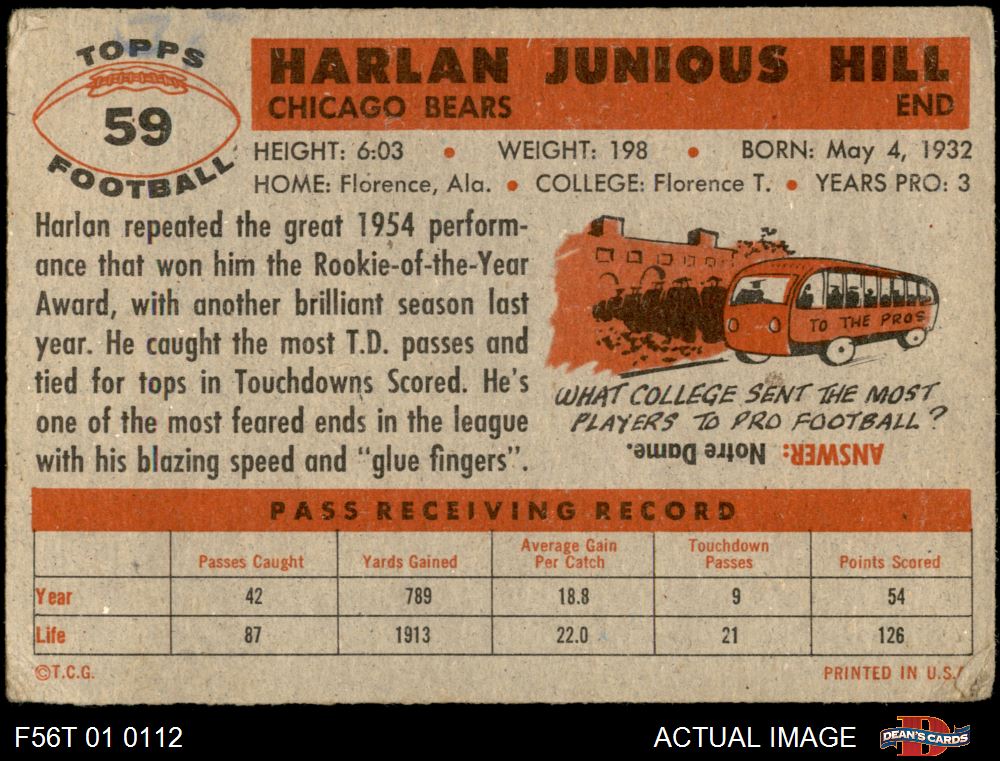 TOPPS
59
FOOTBALL
HARLAN JUNIOUS HILL
CHICAGO BEARS END
HEIGHT: 6:03 • WEIGHT: 198 • BORN: May 4, 1932
HOME: Florence, Ala. • COLLEGE: Florence T. • YEARS PRO: 3
Harlan repeated the great 1954 perform-
ance that won him the Rookie-of-the-Year
Award, with another brilliant season last
year. He caught the most T.D. passes and
tied for tops in Touchdowns Scored. He's
one of the most feared ends in the league
with his blazing speed and "glue fingers".
TO THE PROS
WHAT COLLEGE SENT THE MOST
PLAYERS TO PRO FOOTBALL?
ANSWER: Notre Dame.
PASS RECEIVING RECORD
Passes Caught Yards Gained Average Gain Per Catch Touchdown Passes Points Scored
Year 42 789 18.8 9 54
Life 87 1913 22.0 21 126
©T.C.G. PRINTED IN U.S.
F56T 01 0112 ACTUAL IMAGE DEAN'S CARDS